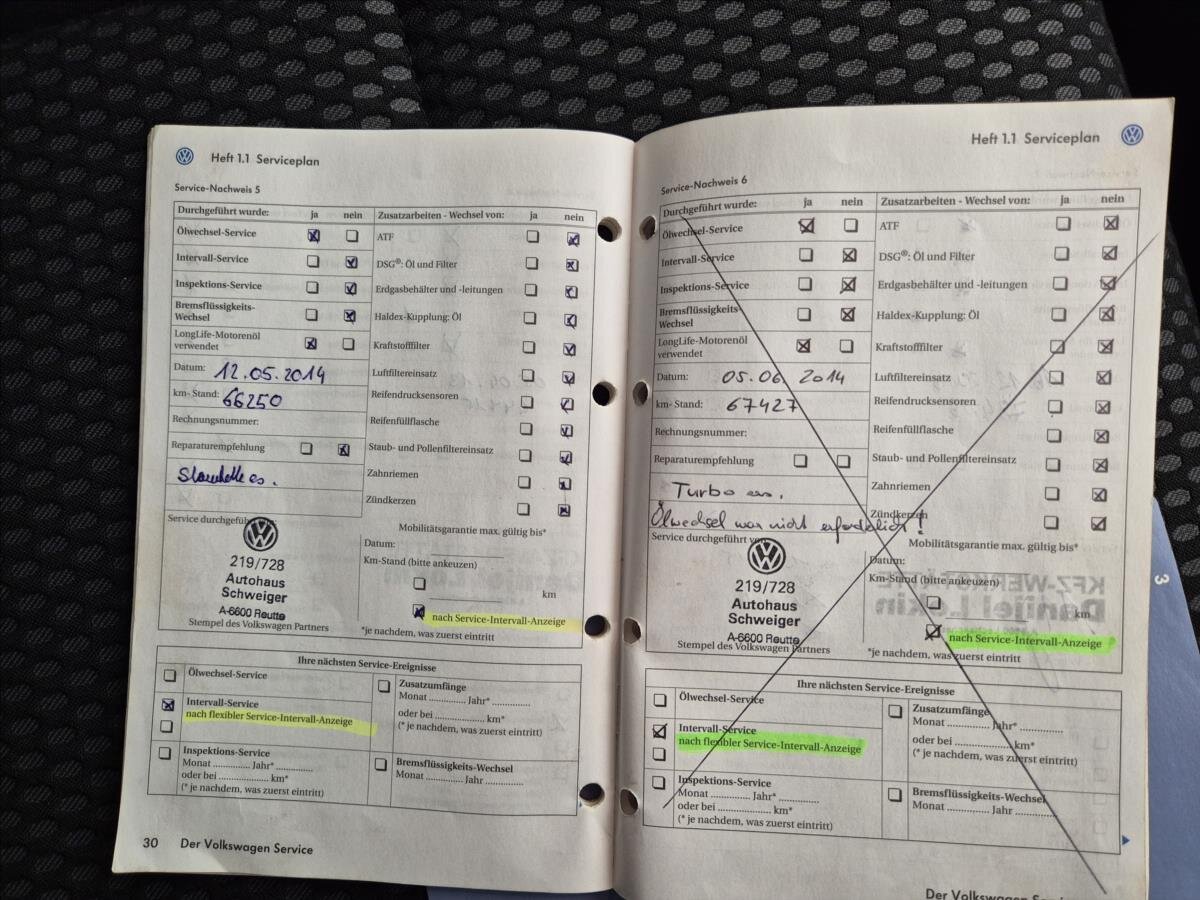 Heft 1.1 Serviceplan
Service-Nachweis 5
Durchgeführt wurde: ja nein
Ölwechsel-Service
Intervall-Service
Inspektions-Service
Bremsflüssigkeits-
Wechsel
LongLife-Motorenöl
verwendet
Datum: 12.05.2014
km- Stand: 66250
Rechnungsnummer:
Reparaturempfehlung
Zusatzarbeiten - Wechsel von: ja nein
ATF
DSG®: Öl und Filter
Erdgasbehälter und -leitungen
Haldex-Kupplung: Öl
Kraftstofffilter
Luftfiltereinsatz
Reifendrucksensoren
Reifenfüllflasche
Staub- und Pollenfiltereinsatz
Zahnriemen
Zündkerzen
Service durchgeführ
219/728
Autohaus
Schweiger
A-6600 Reutte
Stempel des Volkswagen Partners
Mobilitätsgarantie max. gültig bis*
Datum:
Km-Stand (bitte ankeuzen)
km
nach Service-Intervall-Anzeige
*je nachdem, was zuerst eintritt
Ihre nächsten Service-Ereignisse
Ölwechsel-Service
Intervall-Service
nach flexibler Service-Intervall-Anzeige
Inspektions-Service
Monat ............ Jahr* ............
oder bei ............ km*
(* je nachdem, was zuerst eintritt)
Zusatzumfänge
Monat ............ Jahr* ............
oder bei ............ km*
(* je nachdem, was zuerst eintritt)
Bremsflüssigkeits-Wechsel
Monat ............ Jahr ............
30 Der Volkswagen Service
Heft 1.1 Serviceplan
Service-Nachweis 6
Durchgeführt wurde: ja nein
Ölwechsel-Service
Intervall-Service
Inspektions-Service
Bremsflüssigkeits-
Wechsel
LongLife-Motorenöl
verwendet
Datum: 05.06 2014
km- Stand: 67427
Rechnungsnummer:
Reparaturempfehlung
Turbo
Ölwechsel war nicht erforderlich!
Zusatzarbeiten - Wechsel von: ja nein
ATF
DSG®: Öl und Filter
Erdgasbehälter und -leitungen
Haldex-Kupplung: Öl
Kraftstofffilter
Luftfiltereinsatz
Reifendrucksensoren
Reifenfüllflasche
Staub- und Pollenfiltereinsatz
Zahnriemen
Zündkerzen
Service durchgeführt von
219/728
Autohaus
Schweiger
A-6600 Reutte
Stempel des Volkswagen Partners
Mobilitätsgarantie max. gültig bis*
Datum:
Km-Stand (bitte ankeuzen)
km
nach Service-Intervall-Anzeige
*je nachdem, was zuerst eintritt
Ihre nächsten Service-Ereignisse
Ölwechsel-Service
Intervall-Service
nach flexibler Service-Intervall-Anzeige
Inspektions-Service
Monat ............ Jahr* ............
oder bei ............ km*
(* je nachdem, was zuerst eintritt)
Zusatzumfänge
Monat ............ Jahr* ............
oder bei ............ km*
(* je nachdem, was zuerst eintritt)
Bremsflüssigkeits-Wechsel
Monat ............ Jahr ............
Der Volkswagen
3